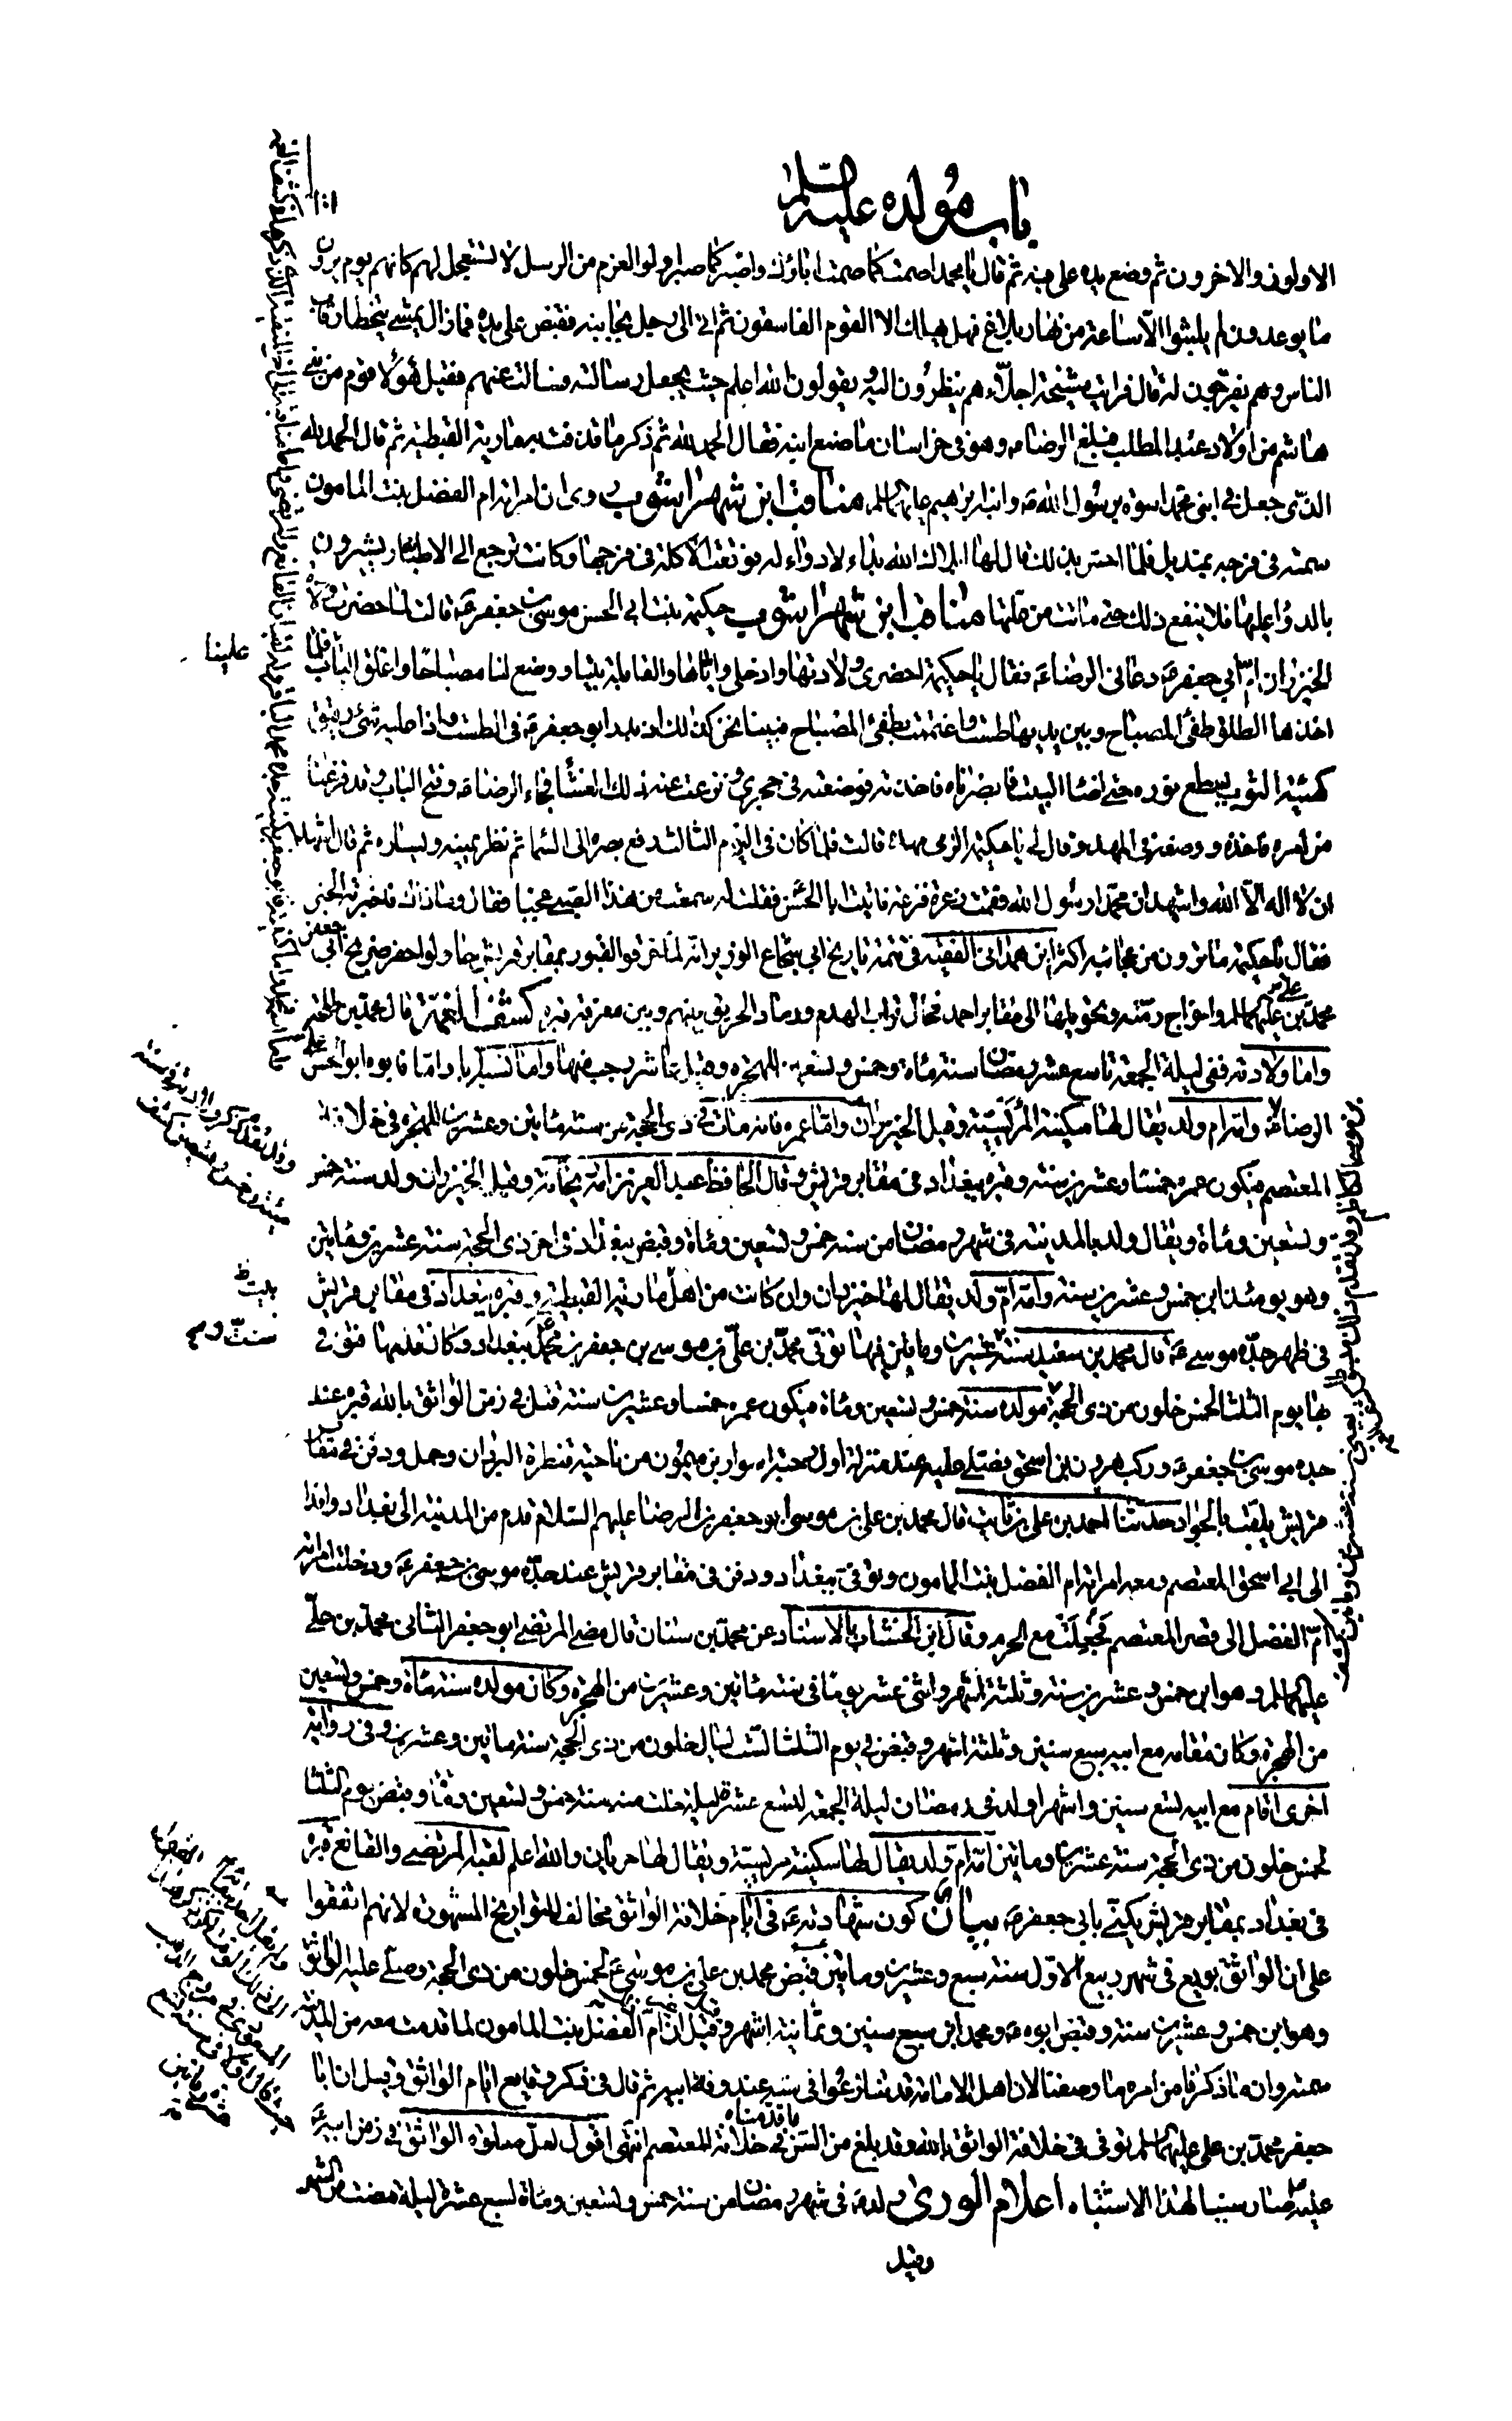 باب مولده عليه السلم
الاولون والاخرون ثم وضع يده على فيه ثم قال يا محمد اصمت كما صمت اباؤك واصبر كما صبر اولوا العزم من الرسل ولا تستعجل لهم كانهم يوم يرون
ما يوعدون لم يلبثوا الا ساعة من نهار بلاغ فهل يهلك الا القوم الفاسقون ثم اتى الى رجل بجانبه فقبض على يده فما زال يمشى يتخطا رقاب
الناس وهم يفرجون له قال فرايت مشيخة اجلاء هم ينظرون اليه ويقولون الله اعلم حيث يجعل رسالته فسالت عنهم فقيل هؤلا قوم من بنى
هاشم من اولاد عبد المطلب فبلغ الرضا ع وهو فى خراسان ما صنع ابنه فقال الحمد لله ثم ذكر ما قذفت به مارية القبطية ثم قال الحمد لله
الذى جعل فى ابنى محمد اسوة برسول الله ص وابنه ابرهيم عليهما السلم مناقب ابن شهراشوب روى ان امراته ام الفضل بنت المامون
سمته فى فرجه بمنديل فلما احس بذلك قال لها ابلاك الله بداء لا دواء له فوقعت الاكلة فى فرجها وكانت ترجع الى الاطباء ويشيرون
بالدواء عليها فلا ينفع ذلك حتى ماتت من علتها مناقب ابن شهراشوب حكيمة بنت ابى الحسن موسى بن جعفر ع قالت لما حضرت ولادة
الخيزران ام ابى جعفر ع دعانى الرضا ع فقال يا حكيمة احضرى ولادتها وادخلى واياها والقابلة بيتا ووضع لنا مصباحا واغلق الباب علينا فلما
اخذها الطلق طفئ المصباح وبين يديها طست فاغتمت بطفئ المصباح فبينا نحن كذلك اذ بدر ابو جعفر ع فى الطست واذا عليه شئ رقيق
كهيئة الثوب يسطع نوره حتى اضاء البيت فابصرناه فاخذته فوضعته فى حجرى ونزعت عنه ذلك الغشاء فجاء الرضا ع وفتح الباب وقد فرغنا
من امره فاخذه ووضعه فى المهد وقال لى يا حكيمة الزمى مهده قالت فلما كان فى اليوم الثالث رفع بصره الى السما ثم نظر يمينه ويساره ثم قال اشهد
ان لا اله الا الله واشهد ان محمدا رسول الله فقمت ذعرة فزعة فاتيت ابا الحسن فقلت له سمعت من هذا الصبى عجبا فقال وما ذاك فاخبرته الخبر
فقال يا حكيمة ما ترون من عجائبه اكثر ابن همدانى الفقيه فى تتمة تاريخ ابى شجاع الوزير انه لما خرقوا القبور بمقابر قريش حاولوا حفر ضريح ابى جعفر
محمد بن على عليهما السلم واخراج رمته وتحويلها الى مقابر احمد فحال تراب الهدم ورماد الحريق بينهم وبين معرفة قبره كشف الغمة قال محمد بن طلحة
واما ولادته ففى ليلة الجمعة تاسع عشر رمضان سنة مائة وخمس وتسعين للهجرة وقيل عاشر رجب منها واما نسبه ابا واما فابوه ابو الحسن على
الرضا ع وامه ام ولد يقال لها سكينة المريسية وقيل الخيزران واما عمره فانه مات فى ذى الحجة من سنة مائتين وعشرين للهجرة فى خلافة
المعتصم فيكون عمره خمسا وعشرين سنة وقبره ببغداد فى مقابر قريش وقال الحافظ عبد العزيز امه ريحانة وقيل الخيزران ولد سنة خمس
وتسعين ومائة ويقال ولد بالمدينة فى شهر رمضان من سنة خمس وتسعين ومائة وقبض ببغداد فى اخر ذى الحجة سنة عشرين ومائتين
وهو يومئذ ابن خمس وعشرين سنة وامه ام ولد يقال لها خيزران وان كانت من اهل مارية القبطية وقبره ببغداد فى مقابر قريش
فى ظهر جده موسى ع قال محمد بن سعيد سنة عشرين ومايتين فيها توفى محمد بن على بن موسى بن جعفر بن محمد ببغداد وكان قدمها فتوفى
بها يوم الثلثا لخمس خلون من ذى الحجة مولده سنة خمس وتسعين ومائة فيكون عمره خمسا وعشرين سنة قتل فى زمن الواثق بالله قبره عند
جده موسى بن جعفر ع وركب هرون بن اسحق فصلى عليه عند منزله اول رحبة اسوار بن ميمون من ناحية قنطرة البردان وحمل ودفن فى مقابر
قريش يلقب بالجواد حدثنا احمد بن على بن ثابت قال محمد بن على بن موسى ابو جعفر بن الرضا عليهم السلام قدم من المدينة الى بغداد وافدا
الى ابى اسحق المعتصم ومعه امراته ام الفضل بنت المامون وتوفى ببغداد ودفن فى مقابر قريش عند جده موسى بن جعفر ع ودخلت امراته
ام الفضل الى قصر المعتصم فجعلت مع الحرم وقال ابن الخشاب بالاسناد عن محمد بن سنان قال مضى المرتضى ابو جعفر الثانى محمد بن على
عليهما السلم وهو ابن خمس وعشرين سنة وثلثة اشهر واثنى عشر يوما فى سنة مائتين وعشرين من الهجرة وكان مولده سنة مائة وخمس وتسعين
من الهجرة وكان مقامه مع ابيه سبع سنين وثلثة اشهر وقبض فى يوم الثلثا لست ليال خلون من ذى الحجة سنة مائتين وعشرين وفى رواية
اخرى اقام مع ابيه تسع سنين واشهرا ولد فى رمضان ليلة الجمعة لتسع عشرة ليلة خلت منه سنة خمس وتسعين ومائة وقبض يوم الثلثا
لخمس خلون من ذى الحجة سنة عشرين ومائتين امه ام ولد يقال لها سكينة مريسية ويقال لها حربان والله اعلم لقبه المرتضى والقانع قبره
فى بغداد بمقابر قريش يكنى بابى جعفر ع بيان كون شهادته ع فى ايام خلافة الواثق مخالف للتواريخ المشهورة لانهم اتفقوا
على ان الواثق بويع فى شهر ربيع الاول سنة سبع وعشرين ومايتين قبض محمد بن على بن موسى ع لخمس خلون من ذى الحجة وصلى عليه الواثق
وهو ابن خمس وعشرين سنة وقبض ابوه ع ومحمد ابن سبع سنين وثمانية اشهر وقيل ان ام الفضل بنت المامون لما قدمت معه من المدينة
سمته وانما ذكرنا من امره ما وصفنا لان اهل الامامة قد تنازعوا فى سنه عند وفاة ابيه ثم قال فى ذكر وقايع ايام الواثق وقيل ان ابا
جعفر محمد بن على عليهما السلم توفى فى خلافة الواثق بالله وقد بلغ من السن ما قدمناه فى خلافة المعتصم انتهى اقول لعل صلوة الواثق فى زمن ابيه ع
عليه صار سببا لهذا الاشتباه اعلام الورى ولد ع فى شهر رمضان من سنة خمس وتسعين ومائة لسبع عشرة ليلة مضت من الشهر
وقيل